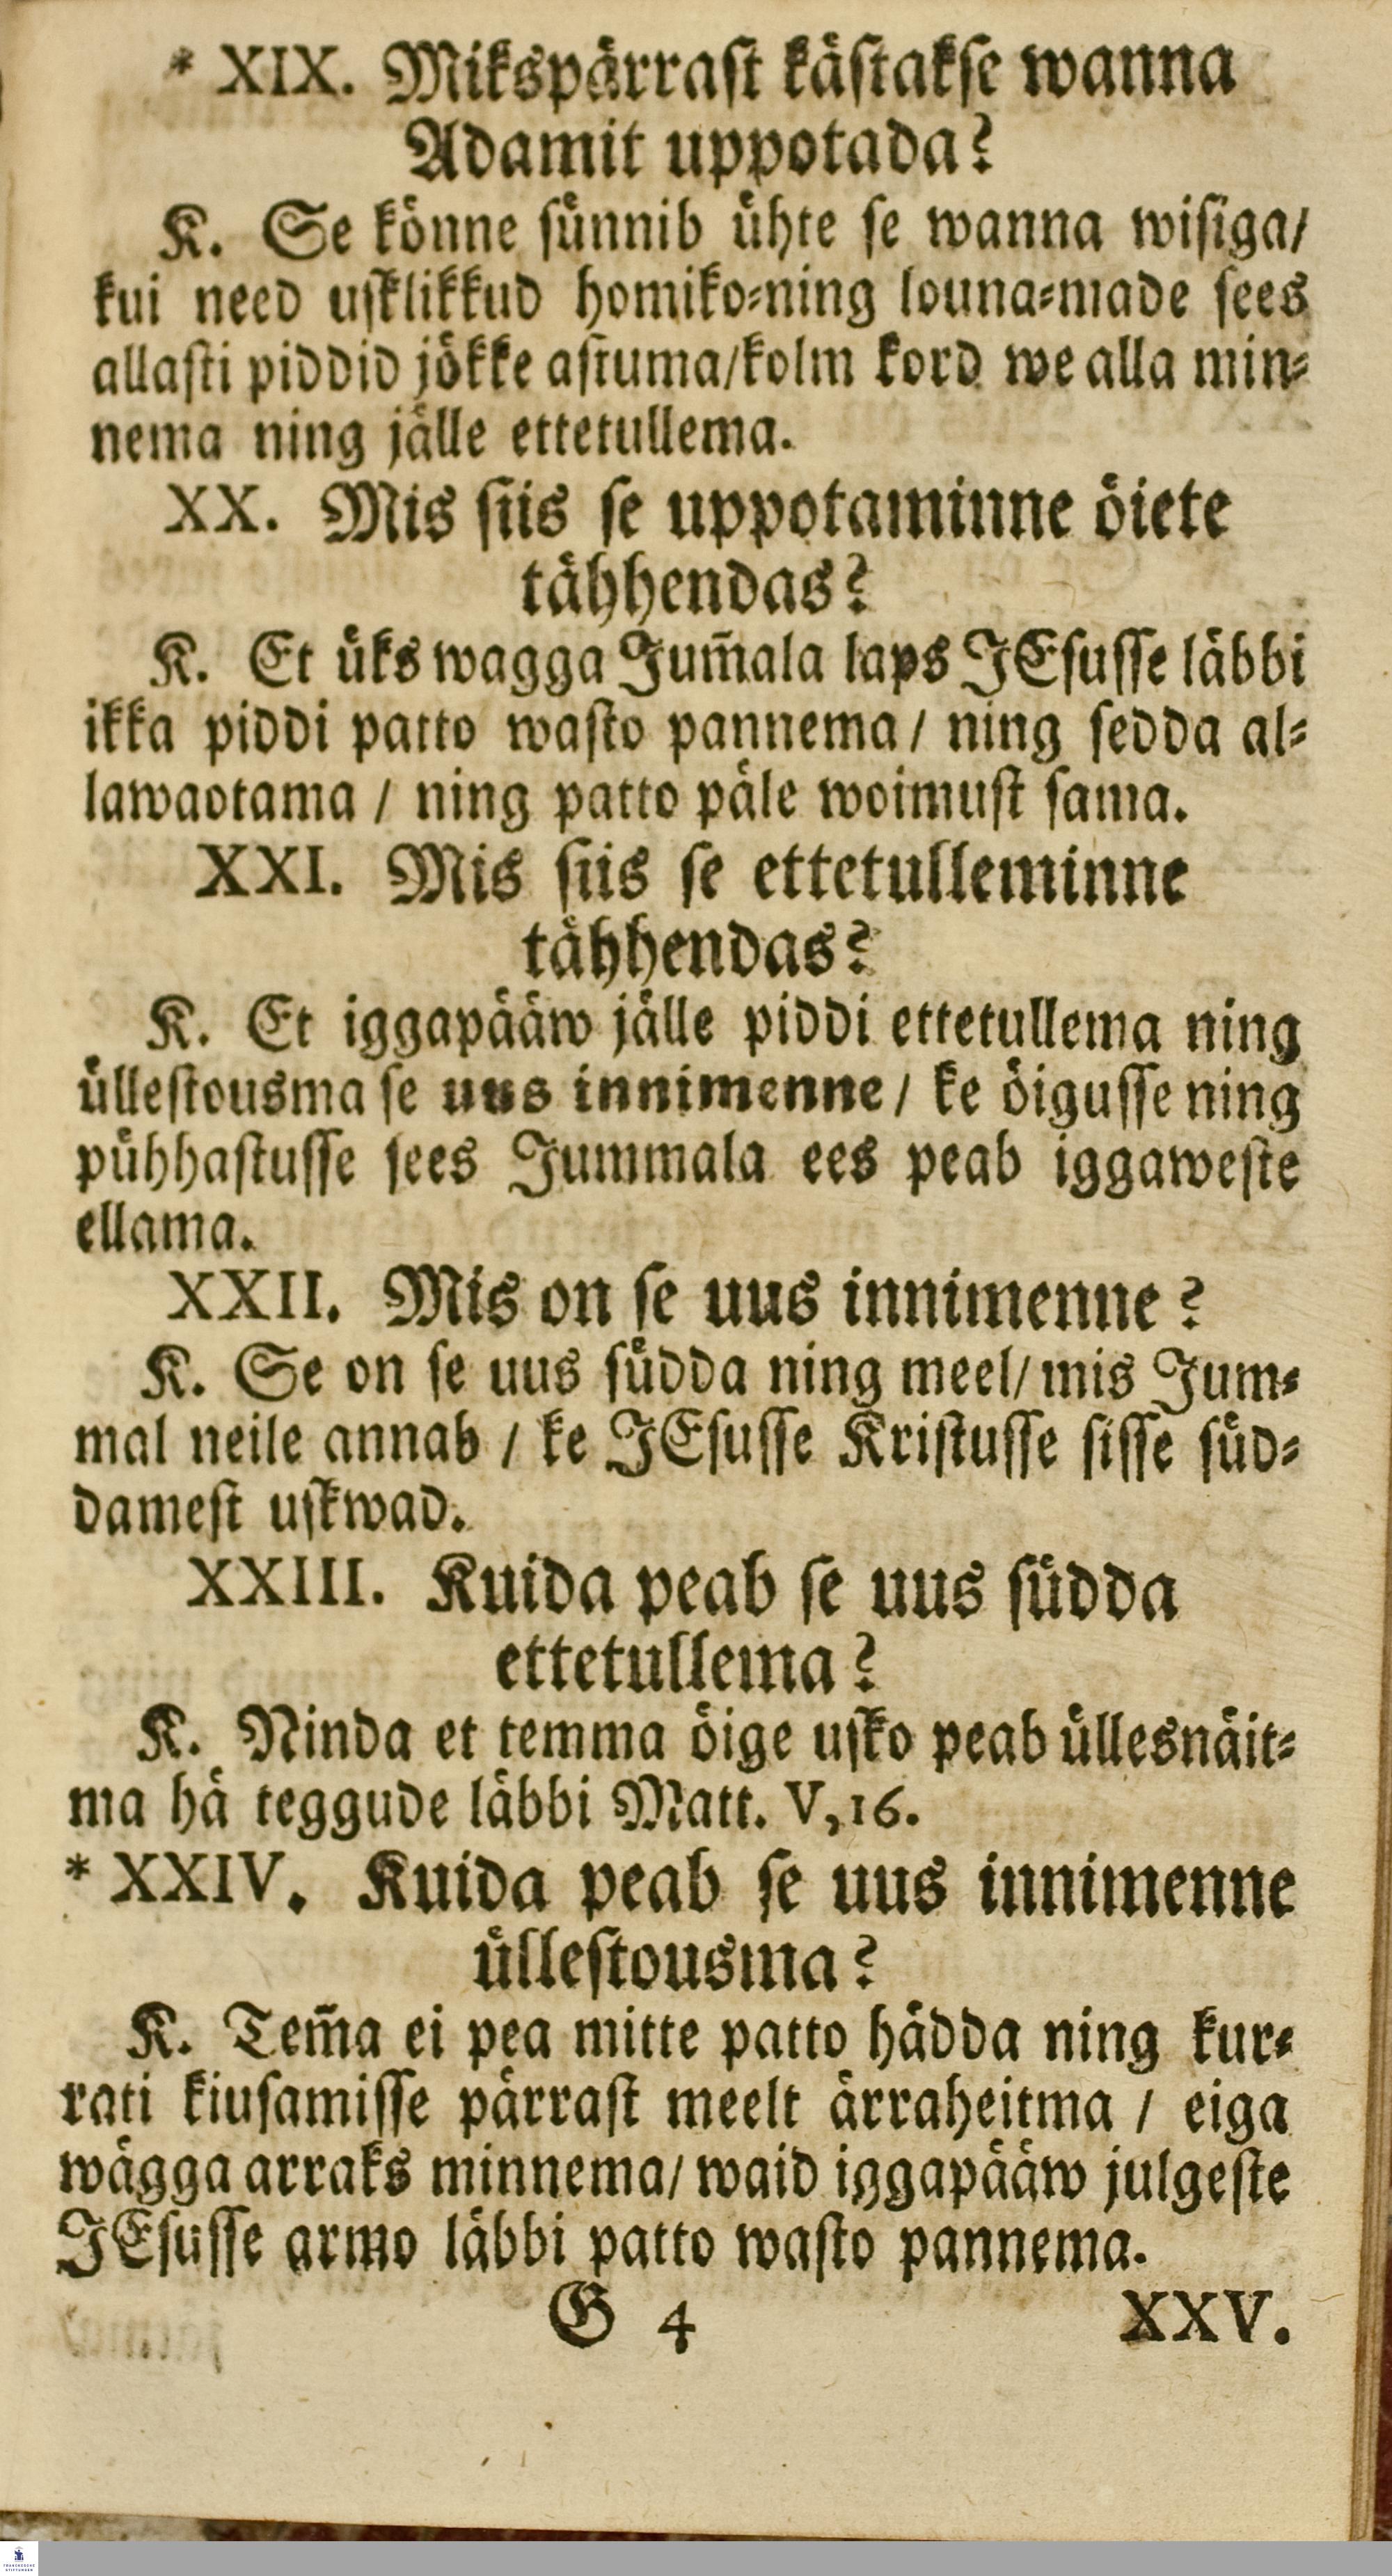 * XIX. Mikspärrast kästakse wanna
Adamit uppotada?
K. Se könne sünnib ühte se wanna wisiga/
kui need usklikkud homiko-ning louna-made sees
allasti piddid jökke astuma/kolm kord we alla min-
nema ning jälle ettetullema.
XX. Mis siis se uppotaminne öiete
tähhendas?
K. Et üks wagga Jum̃ala laps JEsusse läbbi
ikka piddi patto wasto pannema / ning sedda al-
lawaotama / ning patto päle woimust sama.
XXI. Mis siis se ettetulleminne
tähhendas?
K. Et iggapääw jälle piddi ettetullema ning
üllestousma se uus innimenne / ke öigusse ning
pühhastusse sees Jummala ees peab iggaweste
ellama.
XXII. Mis on se uus innimenne?
K. Se on se uus südda ning meel/ mis Jum-
mal neile annab / ke JEsusse Kristusse sisse süd-
damest uskwad.
XXIII. Kuida peab se uus südda
ettetullema?
K. Ninda et temma öige usko peab üllesnäit-
ma hä teggude läbbi Matt. V, 16.
* XXIV. Kuida peab se uus innimenne
üllestousma?
K. Tem̃a ei pea mitte patto hädda ning kur-
rati kiusamisse pärrast meelt ärraheitma / eiga
wägga arraks minnema/ waid iggapääw julgeste
JEsusse armo läbbi patto wasto pannema.
G 4 XXV.